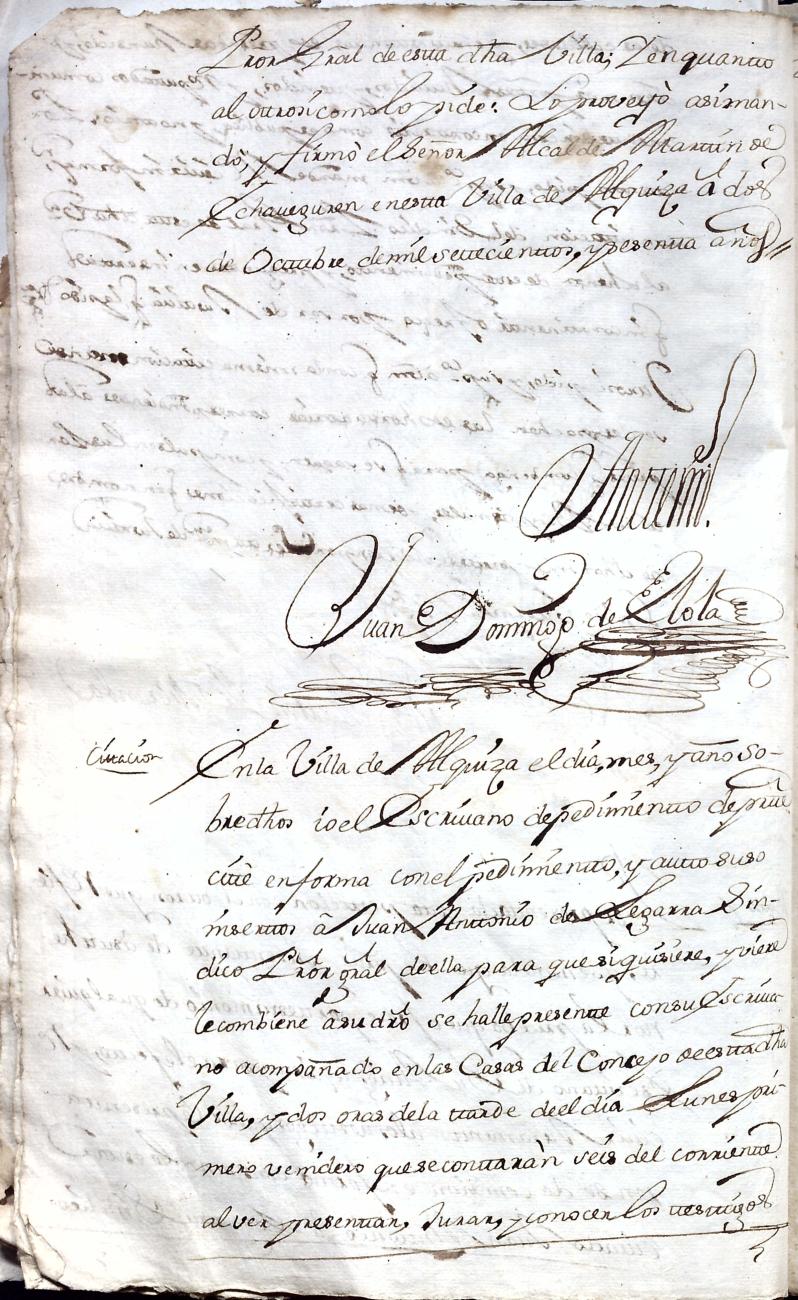 Pror Gral de esta dha Villa; Y en quanto
al otrosi como lo pide: Lo proveyò asi man-
dò, y firmò el Señor Alcalde Martin de
Echaveguren en esta Villa de Alquiza â dos
de Octtubre de mil settecienttos, y sesentta años//
Antemi.
Juan Domingo de Elola
Cittacion
En la Villa de Alquiza el dia, mes, y año so-
bredhos io el Escrivano de pedimientto de partte
cittè en forma con el pedimientto, y autto suso
inserttos â Juan Antonio de Legarra Sin-
dico Pror gral de ella para que si quisiere, y viere
le combiene â su dro se halle presentte con su Escriva-
no acompañado en las Casas del Concejo de esta dha
Villa, y dos oras de la ttarde de el dia Lunes pri-
mero venidero que se conttaràn seis del corrientte
al ver presenttar, Jurar, y conocer los ttesttigos